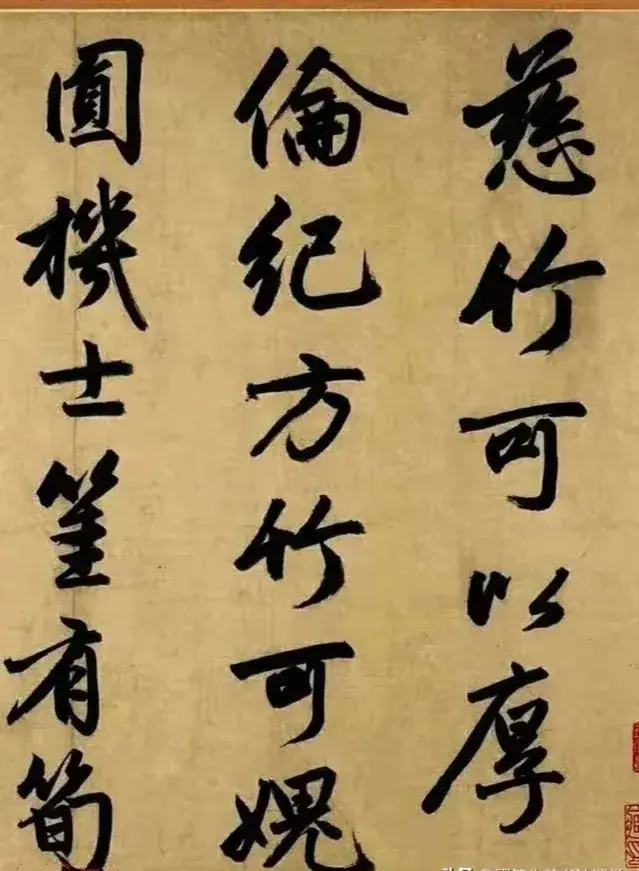 慈竹可以厚
倫紀方竹可媿
圓機士有筍